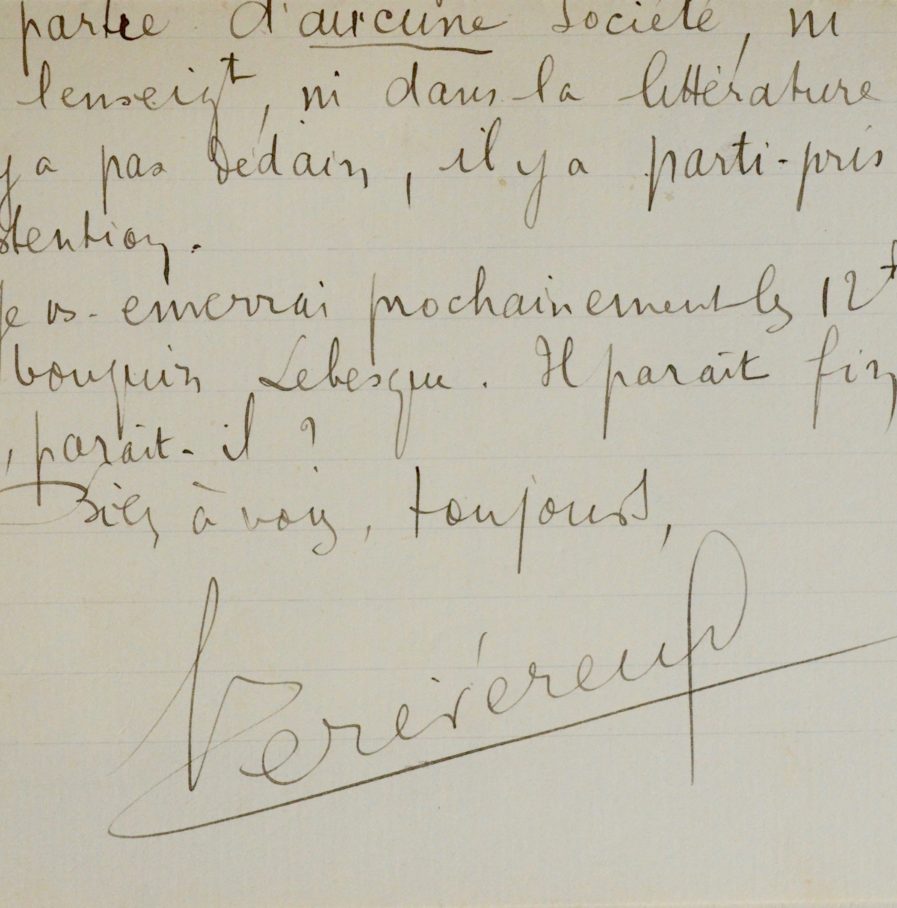 partie d'aucune Société, ni
l'enseigt, ni dans la littérature
y a pas dédain, il y a parti-pris
stention.
Je vs. enverrai prochainement les 12f
bouquin Lebesgue. Il paraît fin
, paraît-il ?
Bien à vous, toujours,